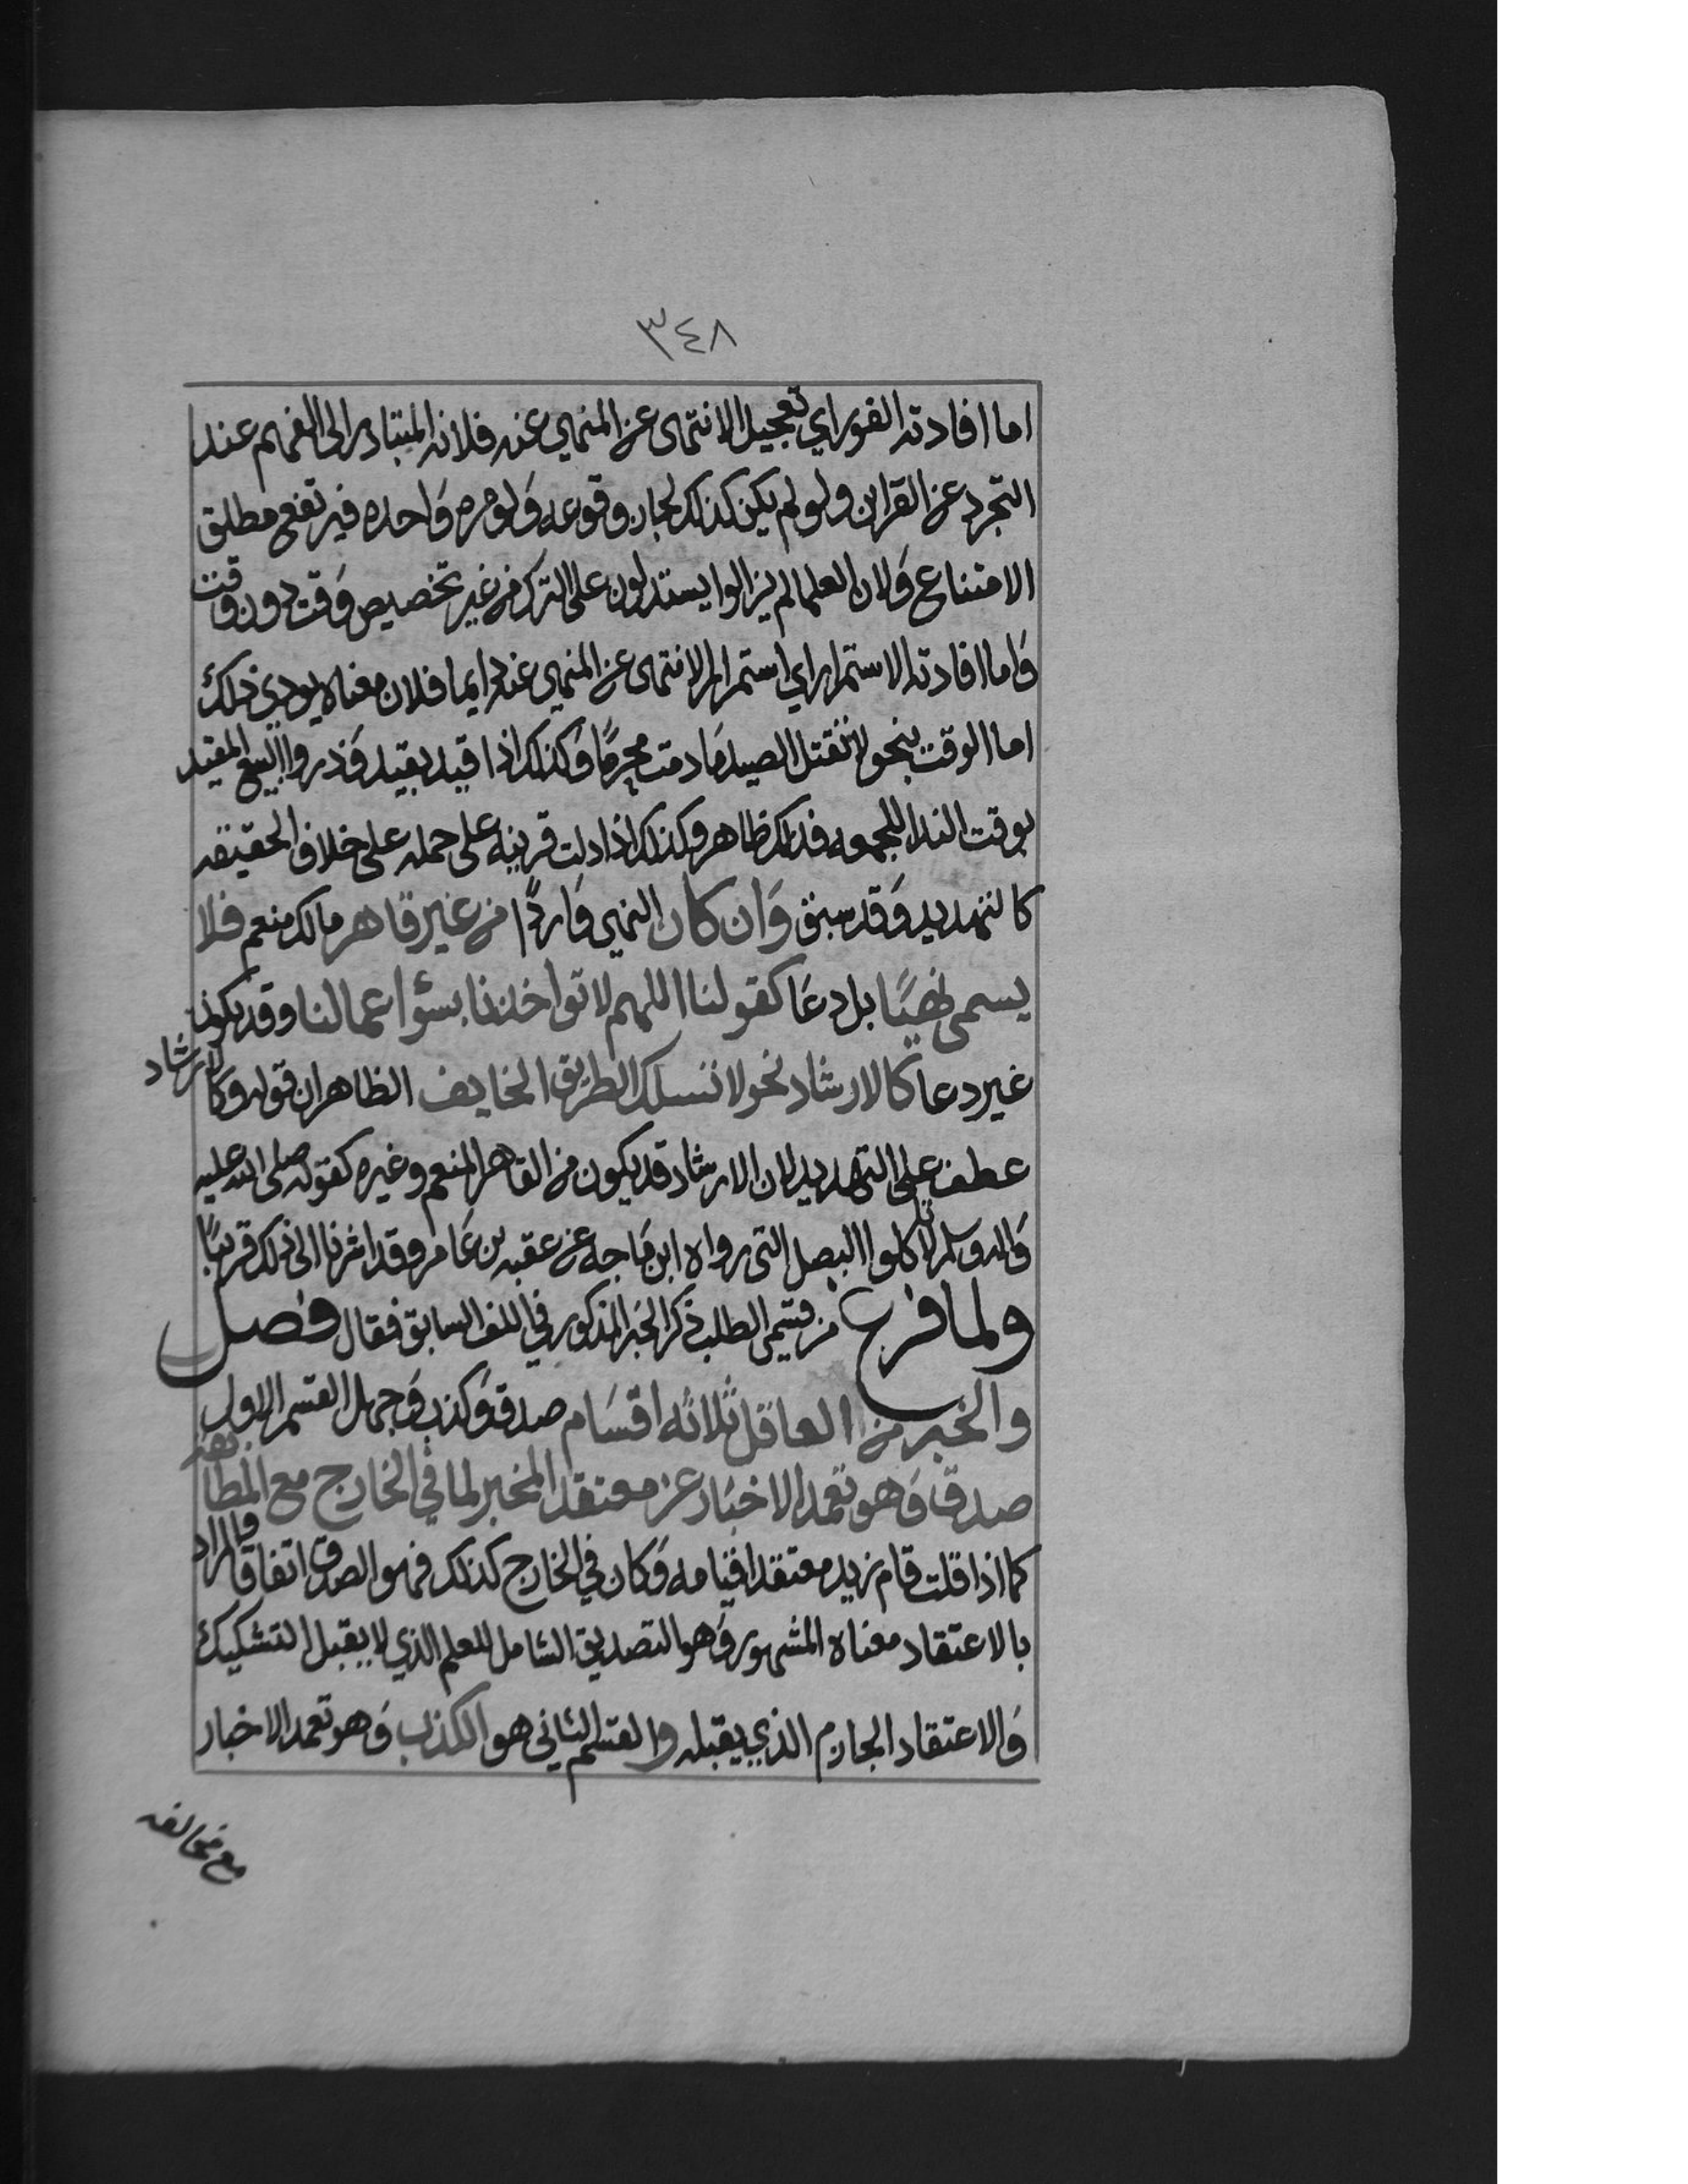 ٣٤٨
اما افادته الفور اي تعجيل الانتهى عن المنهي عنه فلانه المتبادر الى الفهم عند
التجرد عن القراين ولو لم يكن كذلك لجاز وقوعه ولو مره واحده فيرتفع مطلق
الامتناع ولان العلما لم يزالوا يستدلون على الترك من غير تخصيص وقت دون وقت
واما افادته الاستمرار اي استمرار الانتهى عن المنهي عنه دايما فلان معناه يودي ذلك
اما الوقت بنحو لا تقتل الصيد ما دمت محرمًا وكذلك اذا قيد بقيد وذروا البيع المقيد
بوقت الندا للجمعه فذلك ظاهر وكذلك اذا دلت قرينه على حمله على خلاف الحقيقه
كالتهديد وقد سبق وان كان النهي واردًا من غير قاهر مالك منعم فلا
يسمى نهيًا بل دعا كقولنا اللهم لا تواخذنا بسؤ اعمالنا وقد يكون
غير دعا كالارشاد نحو لا تسلك الطريق الخايف الظاهر ان قوله وكالارشاد
عطف على التهديد لان الارشاد قد يكون من القاهر المنعم وغيره كقوله صلى الله عليه
واله وسلم لا تاكلوا البصل التي رواه ابن ماجه عن عقبه بن عامر وقد اشرنا الى ذلك قريبًا
ولما فرغ من قسمي الطلب ذكر الخبر المذكور في اللف السابق فقال فصل
والخبر من العاقل ثلاثه اقسام صدق وكذب وجهل القسم الاول
صدق وهو تعمد الاخبار عن معتقد المخبر لما في الخارج مع المطابقه
كما اذا قلت قام زيد معتقدا قيامه وكان في الخارج كذلك فهو الصدق اتفاقا والمراد
بالاعتقاد معناه المشهور وهو التصديق الشامل للعلم الذي لا يقبل التشكيك
والاعتقاد الجازم الذي يقبله والقسم الثاني هو الكذب وهو تعمد الاخبار
مع مخالفه